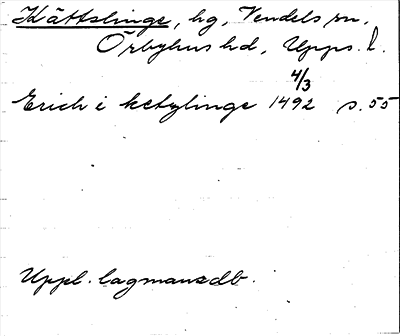 Kättslinge, hg, Vendels sn,
Örbyhus hd, Upps. l.
4/3
Erich i ketylinge 1492 s. 55
Uppl. lagmansdb.